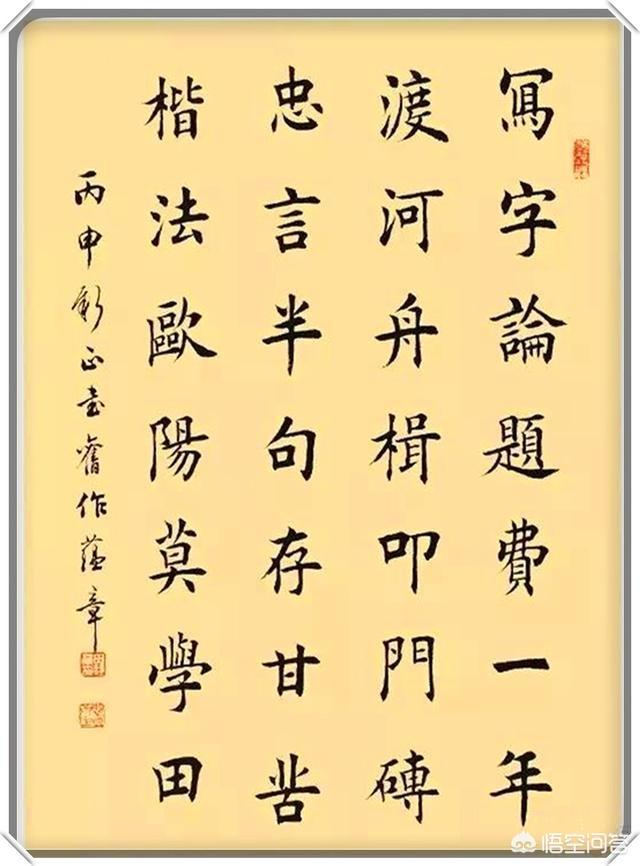 冩字論題費一年
渡河舟楫叩門磚
忠言半句存甘苦
楷法歐陽莫學田
丙申新正書舊作蕴章
悟空问答